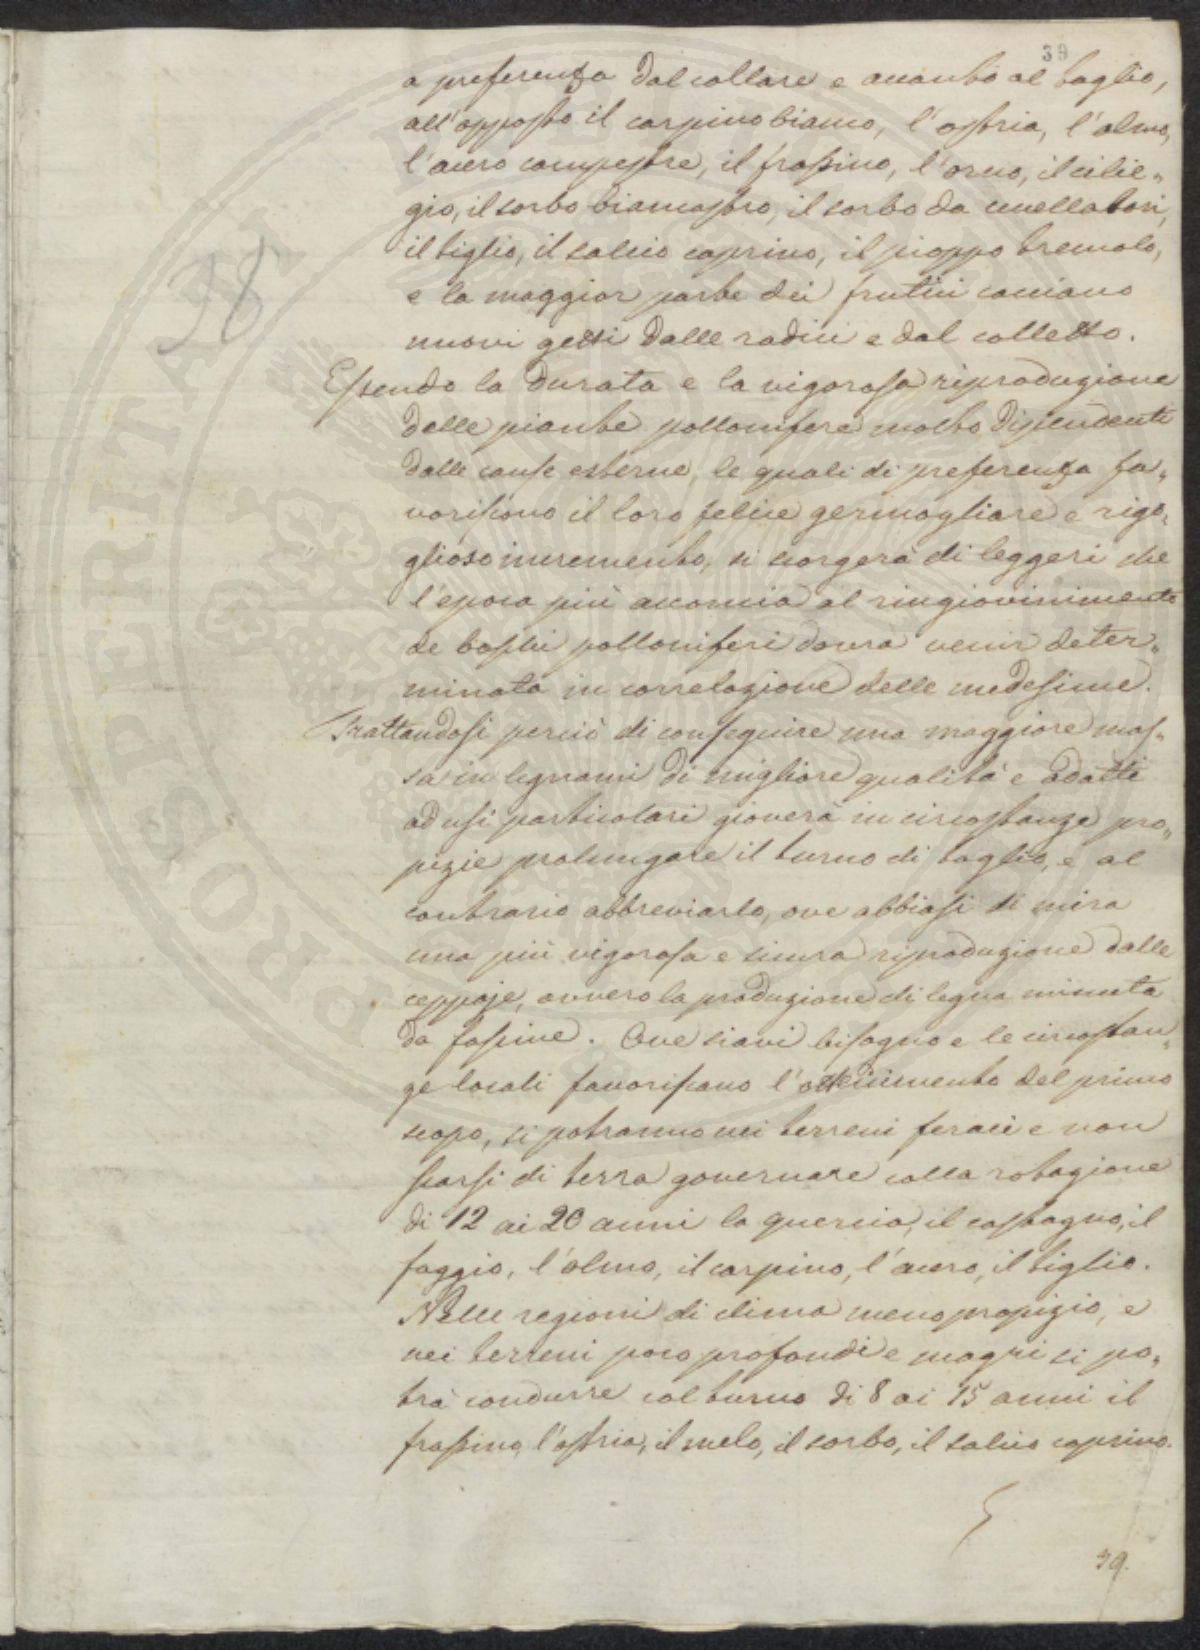 39
a preferenza dal collare e accanto al taglio,
all'opposto il carpino bianco, l'ostria, l'olmo,
l'acero campestre, il frassino, l'orno, il cilie-
gio, il sorbo biancastro, il sorbo da uccellatori,
il tiglio, il salcio caprino, il pioppo tremolo,
e la maggior parte dei frutici cacciano
nuovi getti dalle radici e dal colletto.
38
Essendo la durata e la vigorosa riproduzione
delle piante pollonifere molto dipendenti
dalle cause esterne, le quali di preferenza fa-
voriscono il loro felice germogliare e rigo-
glioso incremento, si scorgerà di leggeri che
l'epoca più acconcia al ringiovinimento
de boschi polloniferi dovrà venir deter-
minata in correlazione delle medesime.
Trattandosi perciò di conseguire una maggiore mas-
sa in legnami di migliore qualità e adatti
ad usi particolari gioverà in circostanze pro-
pizie prolungare il turno di taglio, e al
contrario abbreviarlo, ove abbiasi di mira
una più vigorosa e sicura riproduzione dalle
ceppaje, ovvero la produzione di legna minuta
da fascine. Ove siavi bisogno e le circostan-
ze locali favoriscano l'ottenimento del primo
scopo, si potranno nei terreni feraci e non
scarsi di terra governare colla rotazione
di 12 ai 20 anni la quercia, il castagno, il
faggio, l'olmo, il carpino, l'acero, il tiglio.
Nelle regioni di clima meno propizio, e
nei terreni poco profondi e magri si po-
trà condurre col turno di 8 ai 15 anni il
frassino, l'ostria, il melo, il sorbo, il salcio caprino.
39.
PROSPERITATI